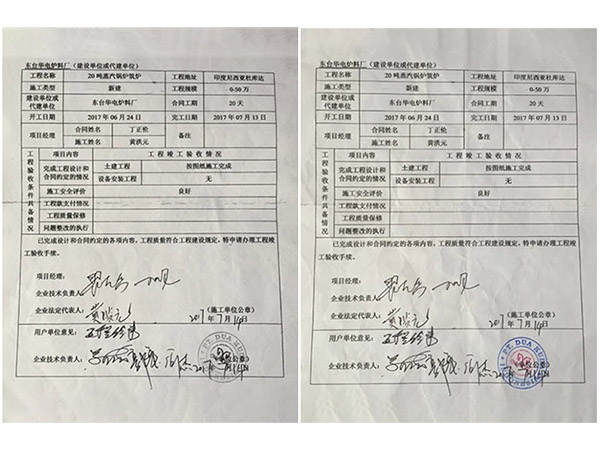 东台华电炉料厂（建设单位或代建单位）
工程名称 20吨蒸汽锅炉筑炉 工程地址 印度尼西亚杜库达
施工类型 新建 工程规模 0-50万
建设单位或代建单位 东台华电炉料厂 合同工期 20天
开工日期 2017年06月24日 完工日期 2017年07月13日
项目经理 合同姓名 丁正伦 备注
施工姓名 黄洪元
工程验收条件具备情况 项目内容 工程竣工验收情况
完成工程设计和合同约定的情况 土建工程 按图纸施工完成
设备安装工程 无
施工安全评价 良好
工程款支付情况
工程质量保修
问题整改的执行
已完成设计和合同约定的各项内容，工程质量符合工程建设规定，特申请办理工程竣
工验收手续。
项目经理：
企业技术负责人：
企业法定代表人：黄洪元 （施工单位公章）
2017年7月14日
用户单位意见：
企业技术负责人： 单位公章）
东台华电炉料厂（建设单位或代建单位）
工程名称 20吨蒸汽锅炉筑炉 工程地址 印度尼西亚杜库达
施工类型 新建 工程规模 0-50万
建设单位或代建单位 东台华电炉料厂 合同工期 20天
开工日期 2017年06月24日 完工日期 2017年07月13日
项目经理 合同姓名 丁正伦 备注
施工姓名 黄洪元
工程验收条件具备情况 项目内容 工程竣工验收情况
完成工程设计和合同约定的情况 土建工程 按图纸施工完成
设备安装工程 无
施工安全评价 良好
工程款支付情况
工程质量保修
问题整改的执行
已完成设计和合同约定的各项内容，工程质量符合工程建设规定，特申请办理工程竣
工验收手续。
项目经理：
企业技术负责人：
企业法定代表人：黄洪元 （施工单位公章）
2017年7月14日
用户单位意见：
PT. DUA KUDA
企业技术负责人： 单位公章）